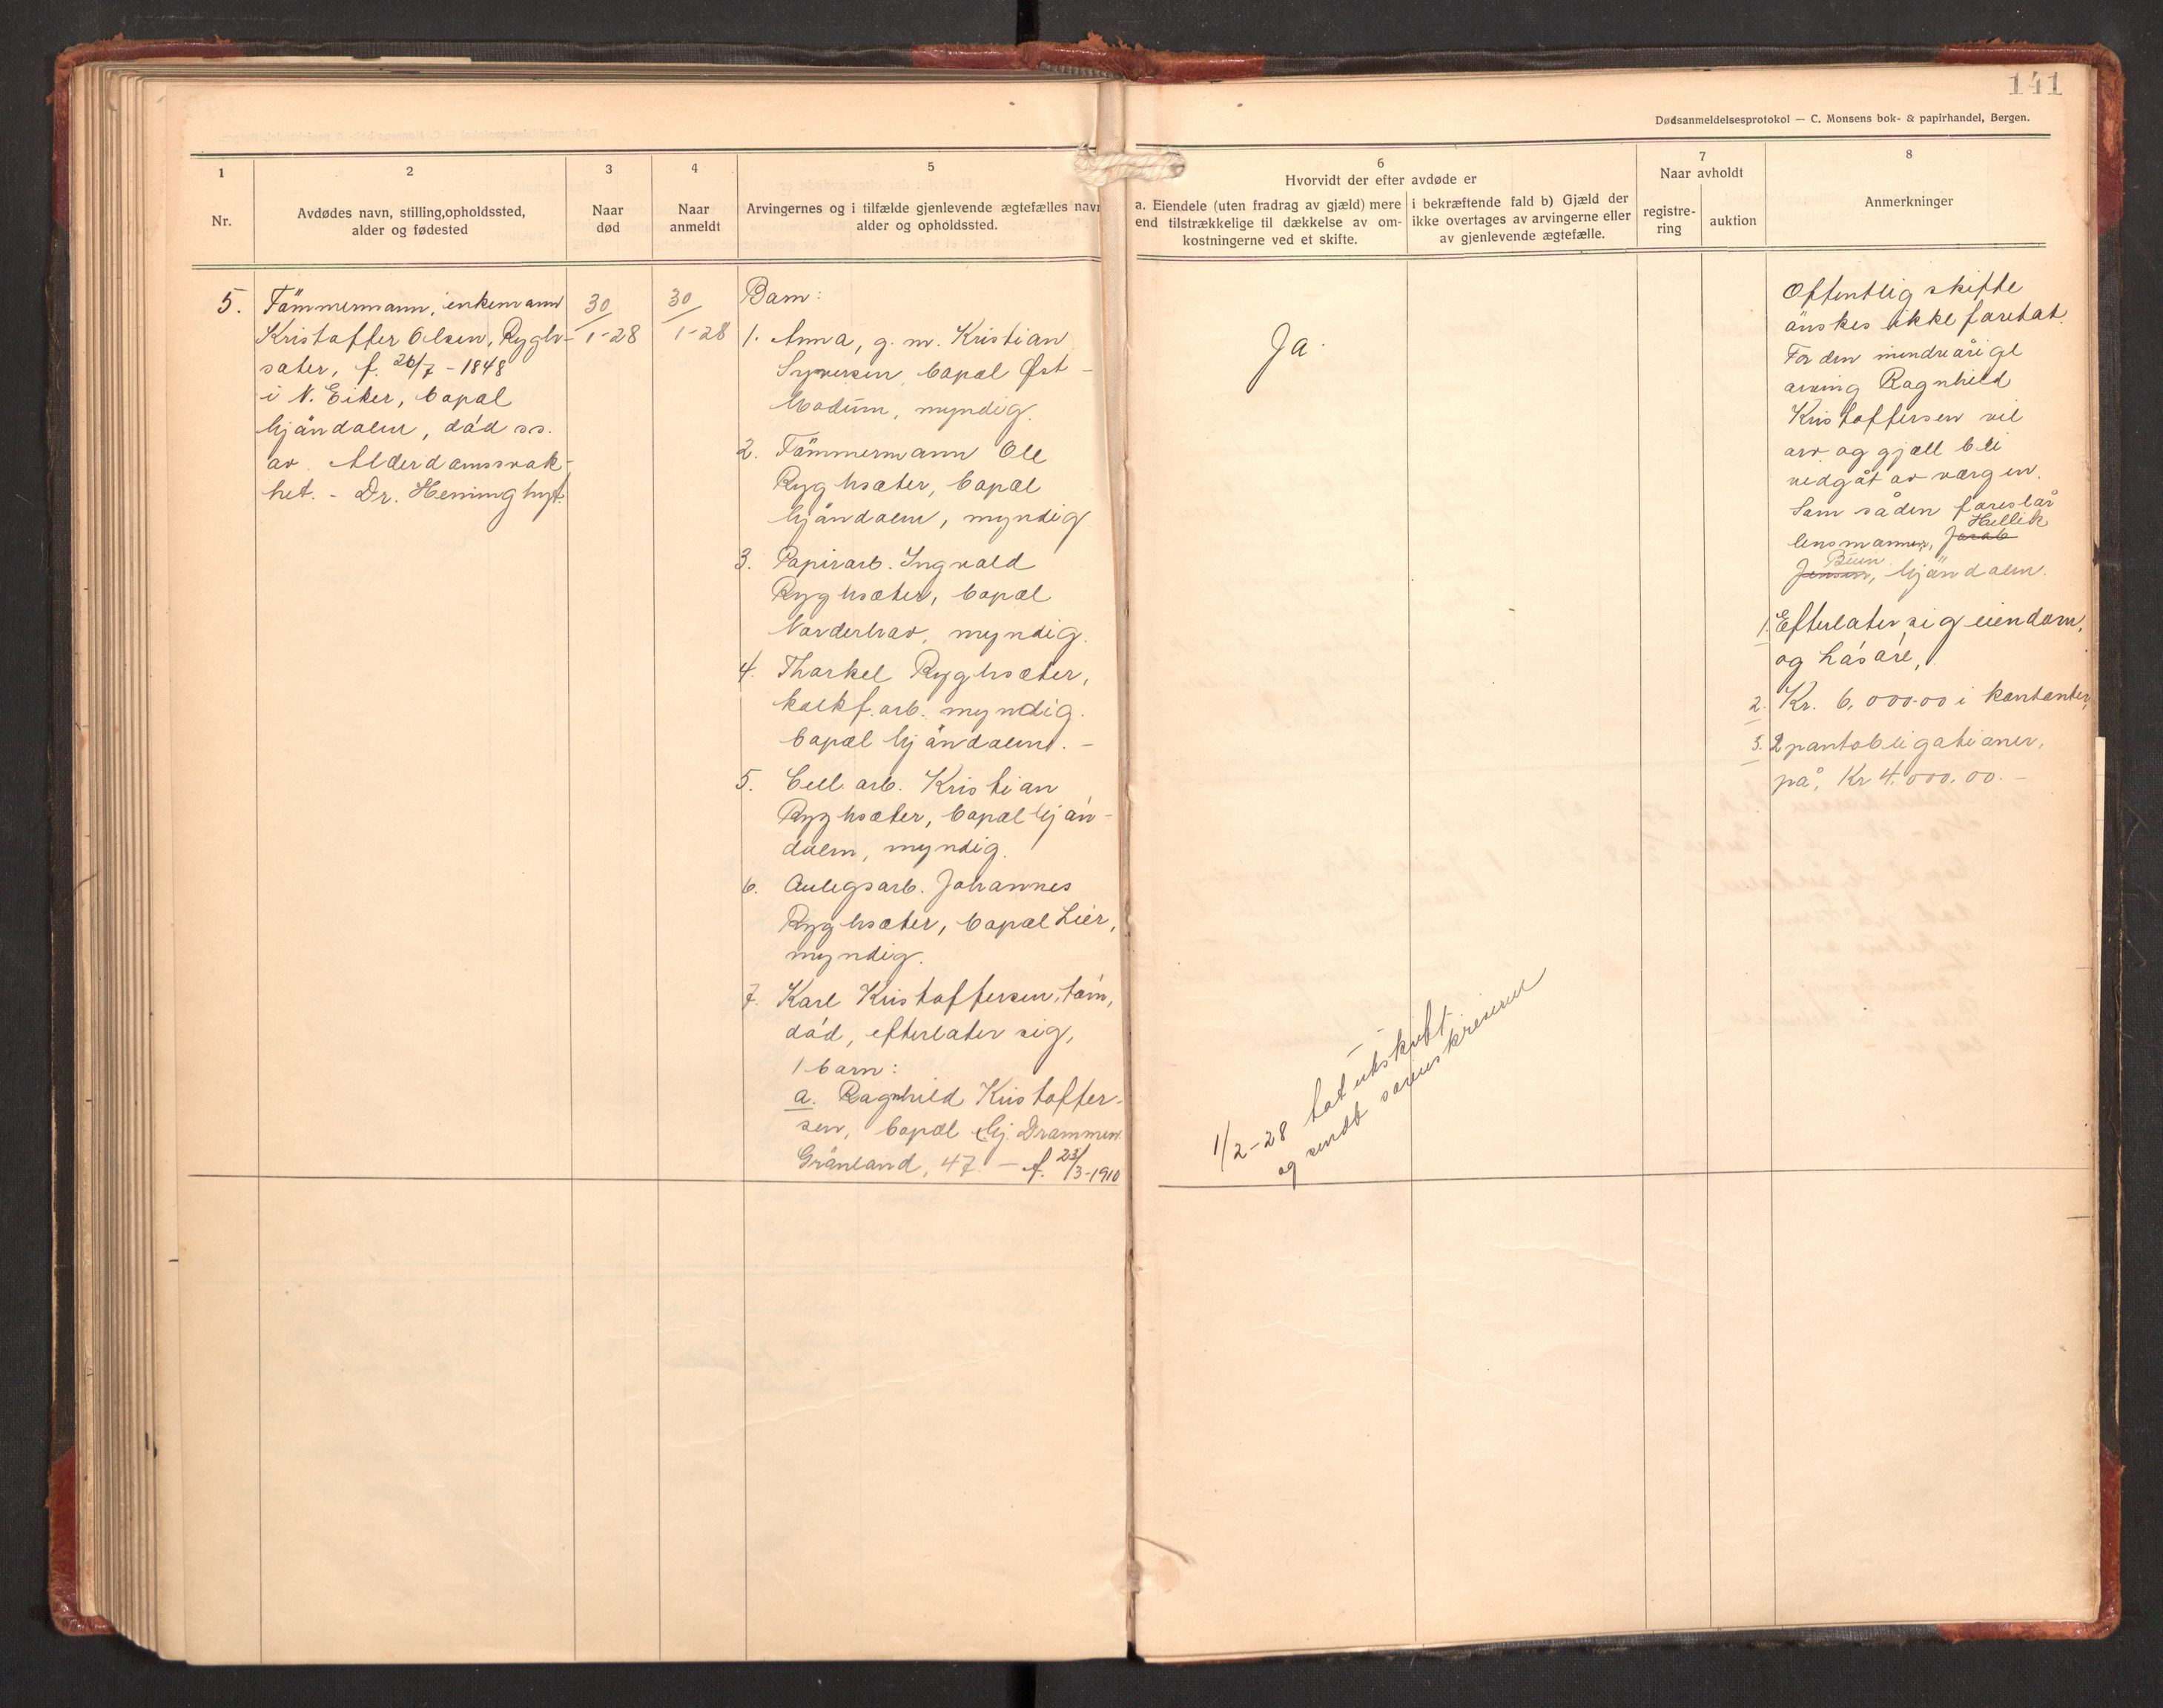 141
Dødsanmeldelsesprotokol — C. Monsens bok- & papirhandel, Bergen.
1
Nr.
2
Avdødes navn, stilling, opholdssted,
alder og fødested
3
Naar
død
4
Naar
anmeldt
5
Arvingernes og i tilfælde gjenlevende ægtefælles navn
alder og opholdssted.
6
Hvorvidt der efter avdøde er
a. Eiendele (uten fradrag av gjæld) mere
end tilstrækkelige til dækkelse av om-
kostningerne ved et skifte.
i bekræftende fald b) Gjæld der
ikke overtages av arvingerne eller
av gjenlevende ægtefælle.
7
Naar avholdt
registre-
ring
auktion
8
Anmerkninger
5.
Tömmermann, enkemann
Kristoffer Olsen, Rygh-
sæter, f. 26/7 - 1848
i N. Eiker, bopæl
Mjöndalen, död ss.
av Alderdomssvak-
het. - Dr.
30/
1-28
30/
1-28
Barn:
1. Anna, g. m. Kristian
Syversen, bopæl Øst-
Modum, myndig.
2. Tömmermann Ole
Ryghsæter, bopæl
Mjöndalen, myndig
3. Papirarb. Ingvald
Ryghsæter, bopæl
Norderhov, myndig.
4. Thorkel Ryghsæter,
kalkf. arb. myndig.
bopæl Mjöndalen. -
5. Cell arb. Kristian
Ryghsæter, bopæl Mjön-
dalen, myndig.
6. Anlegsarb. Johannes
Ryghsæter, bopæl Lier,
myndig.
7. Karl Kristoffersen, töm,
död, efterlater sig,
1 barn:
a. Ragnhild Kristoffer-
sen, bopæl Drammen
Grönland, 47. - f. 23/3-1910
Ja.
1/2-28 tat utskrift
og sendt sorenskriveren
Offentlig skifte
önskes ikke foretat.
For den mindreårige
arving Ragnhild
Kristoffersen vil
arv og gjæll bli
vedgåt av værgen.
Som sådan foreslår
Hellik
lensmannen, Jacob
Buen
Jensen, Mjöndalen.
1. Efterlater sig eiendom,
og lösöre,
2. Kr. 6,000.00 i kontanter,
3. 2 pantobligationer,
på, Kr 4,000.00. -